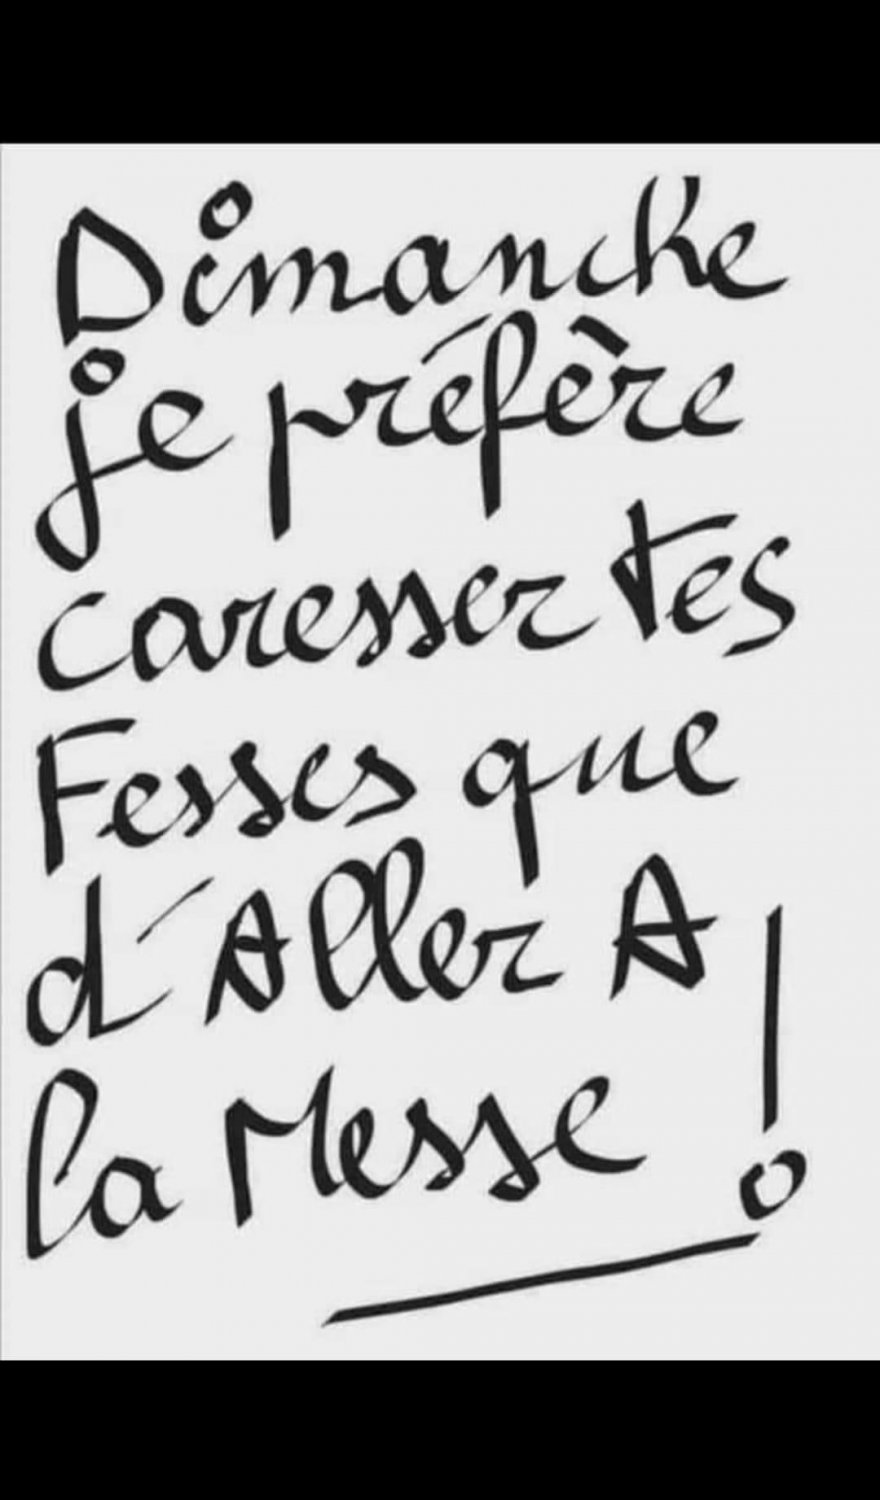 Dimanche
je préfère
caresser tes
Fesses que
d'Aller A
la Messe !